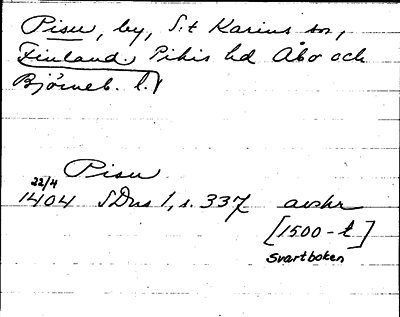 Pisu, by, S:t Karins sn,
Finland. Pikis hd Åbo och
Björneb. l.
Pisu
22/4
1404 SDns 1, s. 337 avskr
[1500-t]
Svartboken